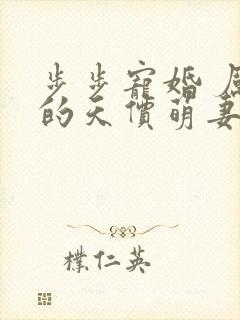 步步寵婚
的天價萌妻
樸仁英